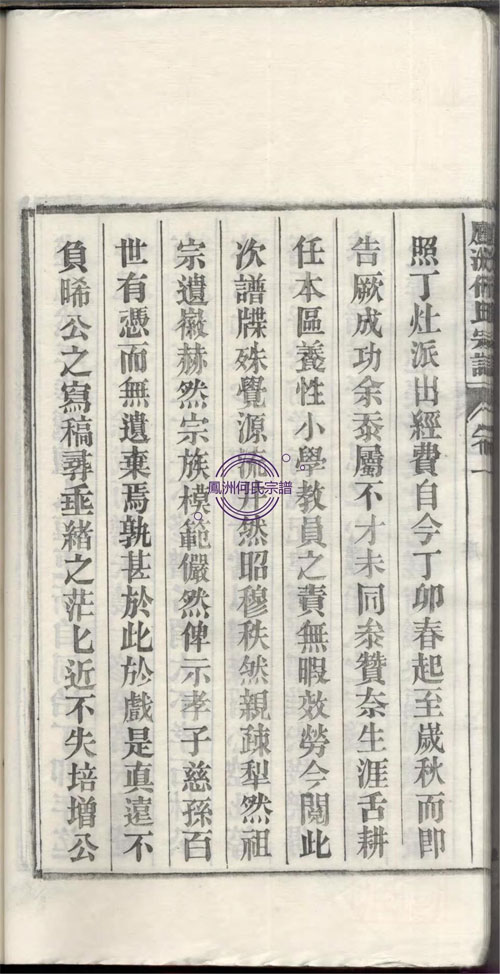 鳳洲何氏宗譜 卷一
照丁灶派出經費自今丁卯春起至嵗秋而即
告厥成功余忝屬不才未同叅贊奈生涯舌耕
任本區養性小學教員之責無暇效勞今閱此
次譜牒殊覺源流井然昭穆秩然親疎犁然祖
宗遺徽赫然宗族模範儼然俾示孝子慈孫百
世有憑而無遺棄焉孰甚於此於戲是真遠不
負晞公之寫稿尋垂緒之茫匕近不失培增公
鳳洲何氏宗譜